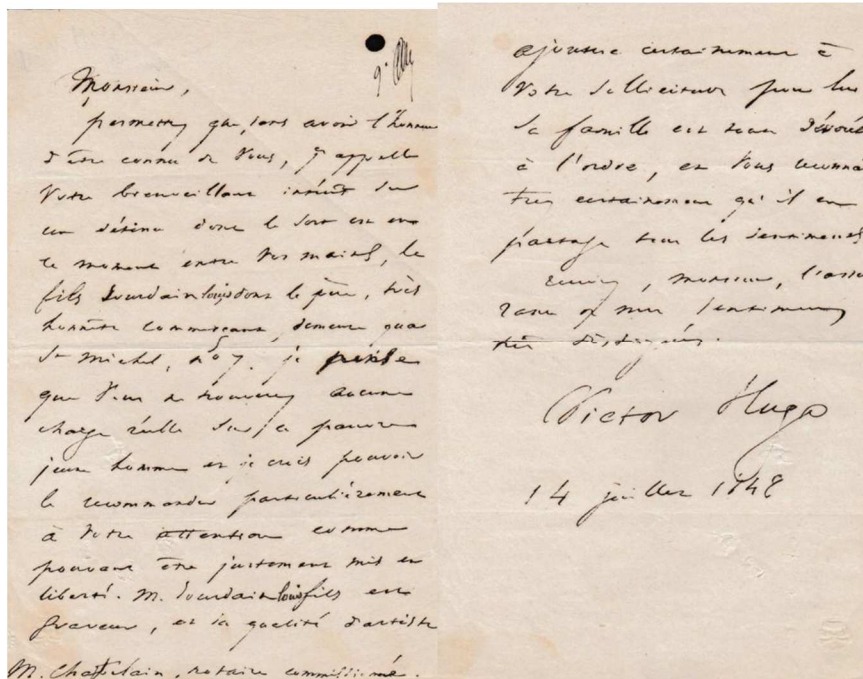 Monsieur,
permettez que, sans avoir l'honneur
d'être connu de vous, j'appelle
votre bienveillant intérêt sur
un détenu dont le sort est en
ce moment entre vos mains, le
fils Jourdain louis dont le père, très
honnête commerçant, demeure quai
St Michel, no 7. je pense
que vous ne trouverez aucune
charge réelle sur ce pauvre
jeune homme et je crois pouvoir
le recommander particulièrement
à votre attention comme
pouvant être justement mis en
liberté. M. Jourdain louis fils est
graveur, et sa qualité d'artiste
M. Chatelain, notaire commissionné.
ajoutera certainement à
votre sollicitude pour lui
sa famille est toute dévouée
à l'ordre, et vous reconna
trez certainement qu'il en
partage tous les sentiments
monsieur, l'assu
rance de mes sentiments
très distingués.
Victor Hugo
14 juillet 1848